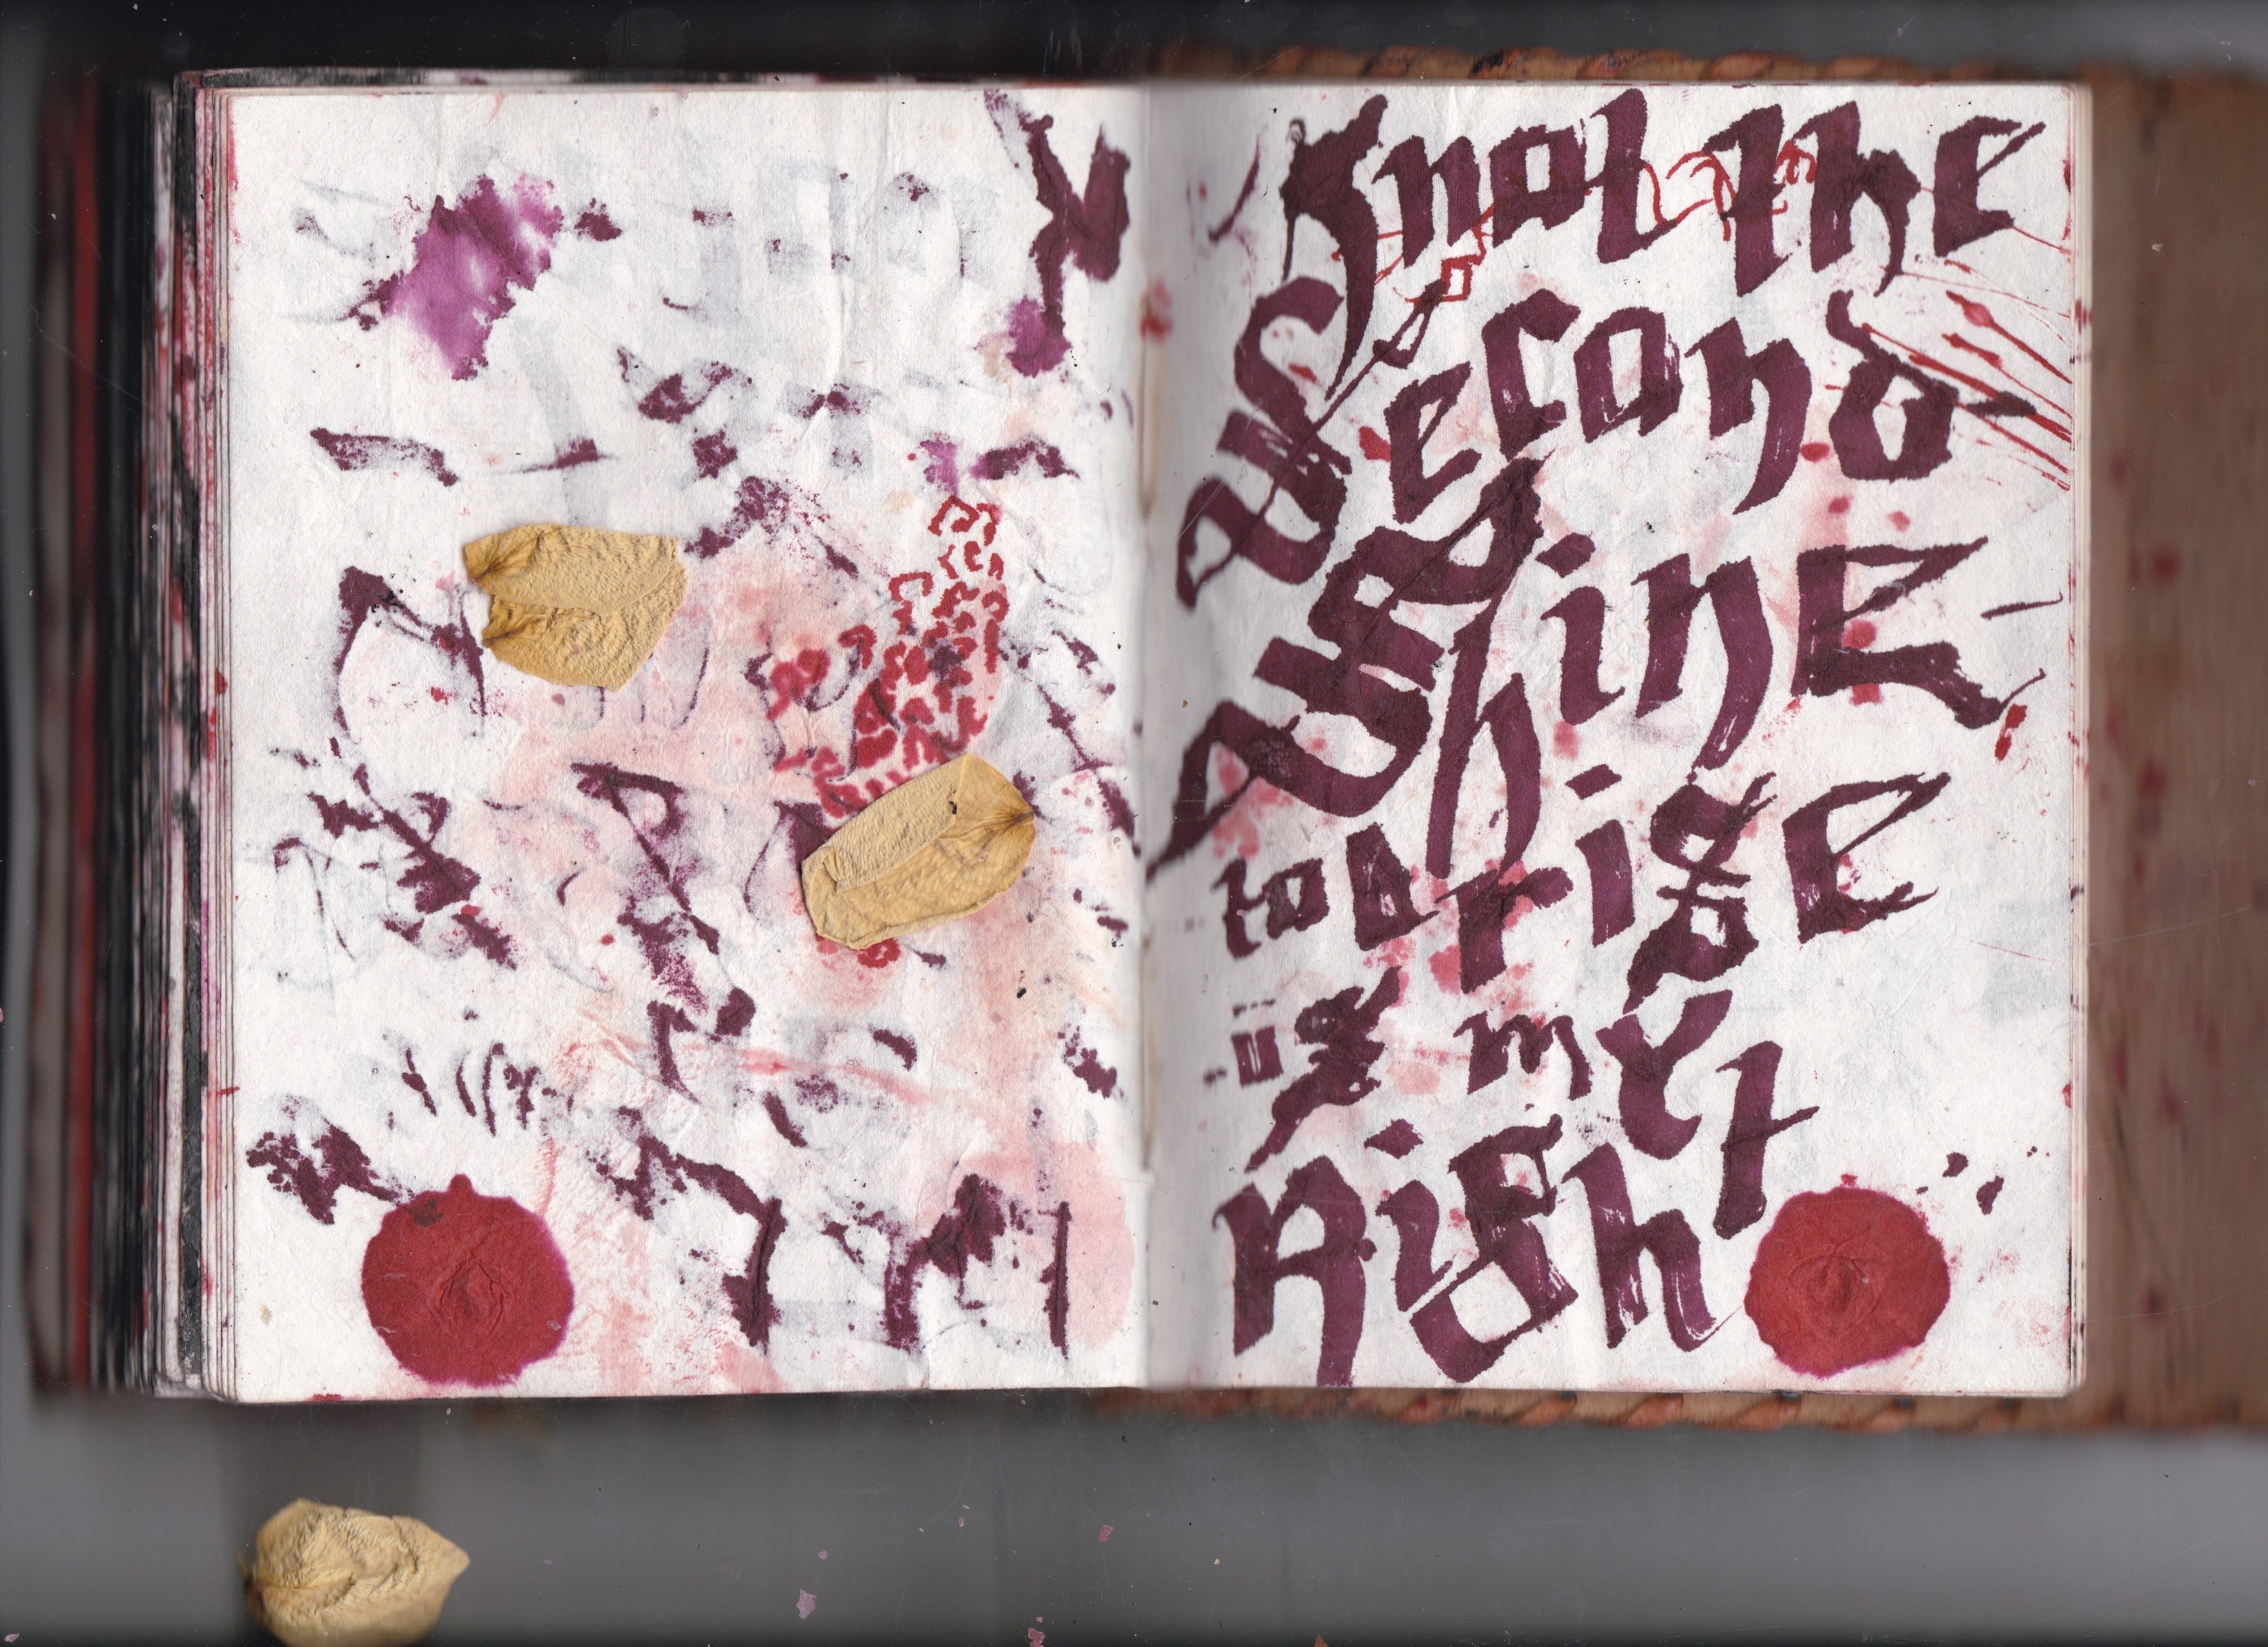 Knot the
Second
Shine
to a rise
is my
Right